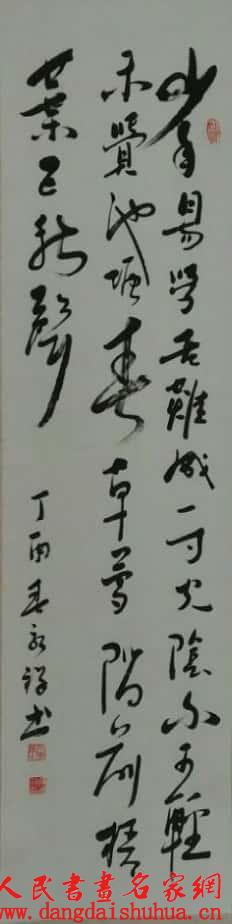 少年易學老難成一寸光陰不可輕
未覺池塘春草夢階前梧
葉已秋聲
丁酉春永祥书
人民書畫名家網
www.dangdaishuhua.com